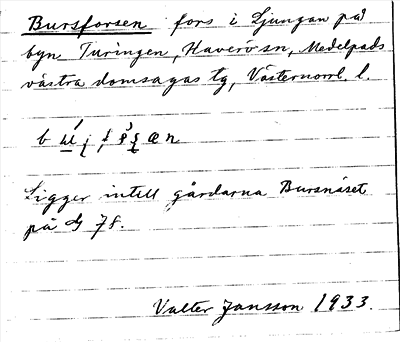 Bursforsen fors i Ljungan på
byn Turingen, Haverö sn, Medelpads
västra domsagas tg, Västernorrl. l.
Ligger intill gårdarna Bursnäset
på dj 78.
Valter Jansson 1933.